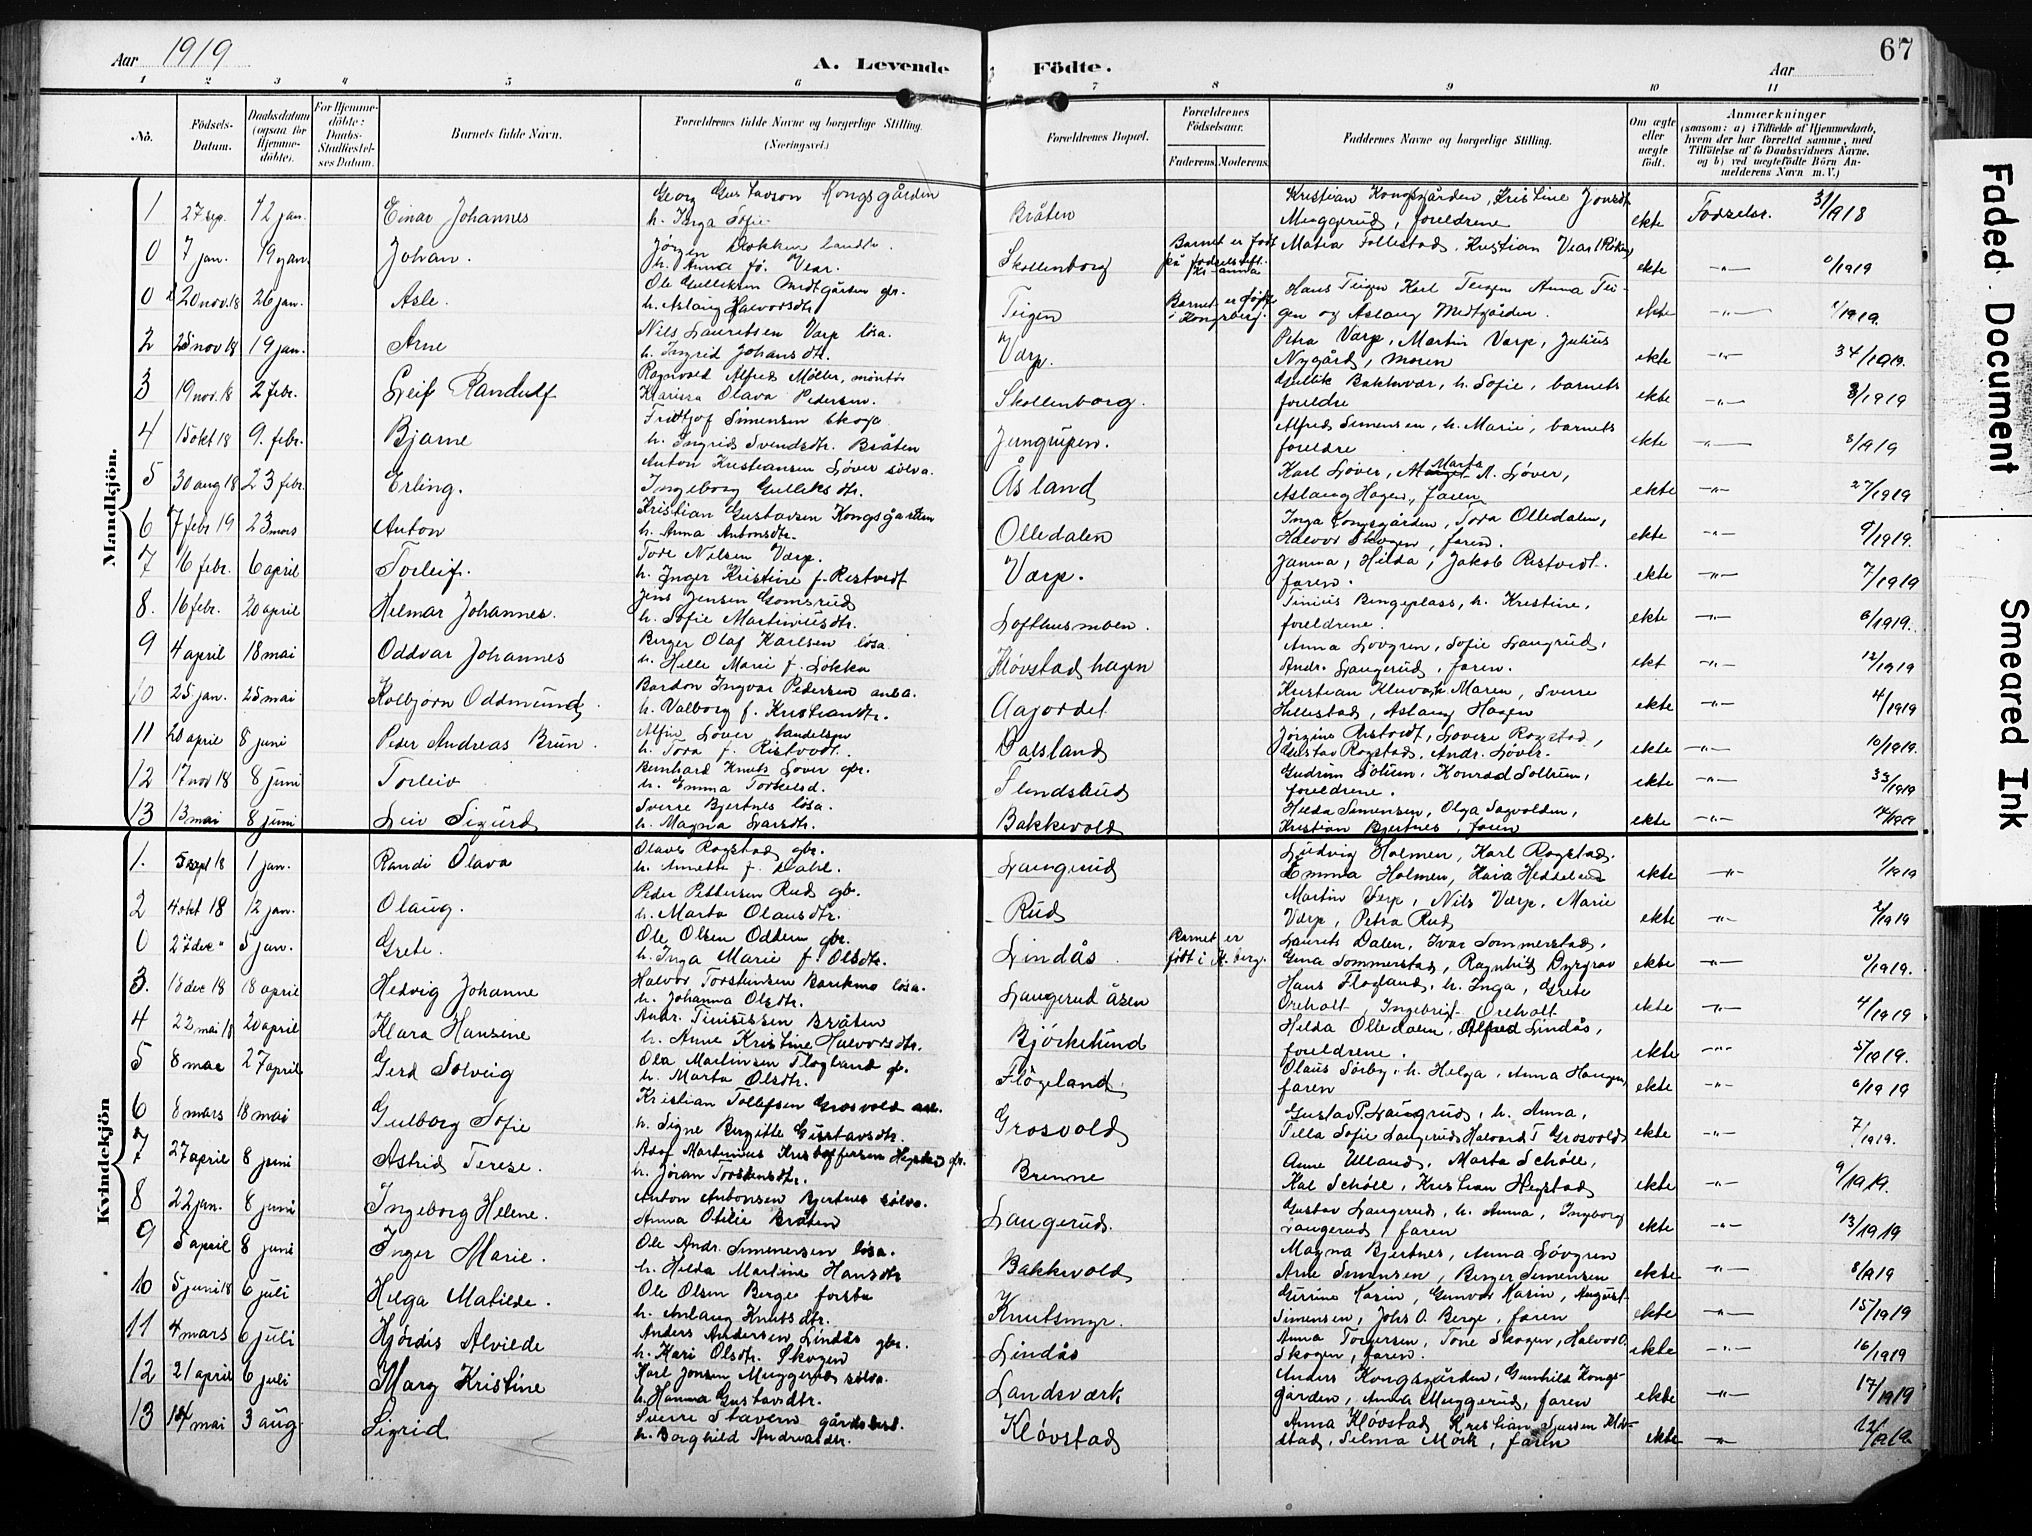 Aar 1919
A. Levende Födte.
Aar
67
1 2 3 4 5 6 7 8 9 10 11
Nö.
Födsels-Datum.
Daabsdatum (ogsaa for Hjemmedöbte).
For Hjemmedöbte: Daabs-Stadfæstelses Datum.
Barnets fulde Navn.
Forældrenes fulde Navne og borgerlige Stilling. (Næringsvei.)
Forældrenes Bopæl.
Forældrenes Födselsaar.
Faderens. Moderens.
Faddernes Navne og borgerlige Stilling.
Om ægte eller uægte födt.
Anmærkninger (saasom: a) i Tilfælde af Hjemmedaab, hvem der har forrettet samme, med Tilföielse af to Daabsvidners Navne, og b) ved uægtefödte Börn Anmelderens Navn m. V.)
Mandkjön.
1 27 sep. 12 jan. Einar Johannes Georg Gustavson Kongsgården h. Inga Sofie Bråten Kristian Kongsgården, Kristine Jonsdt Muggerud, foreldrene ekte Fodselsr. 31/1918
0 7 jan. 19 jan. Johan. Jørgen Dokken landh. h. Anna fø. Vear. Skollenborg Barnet er født på fødselsstift. Kr.ania Matea Follestad, Kristian Vear (Röken) ekte -"- 0/1919
0 20 nov. 18 26 jan. Asle. Ole Gulliksen Medtgården gbr. h. Aslaug Halvorsdtr Teigen Barnet er født i Kongsberg. Hans Teigen Karl Teigen Anna Teigen og Aslaug Medtgården. ekte -"- 0/1919.
2 25 nov 18 19 jan. Arne Nils Lauritsen Værp løsa. h. Ingrid Johansdtr. Værp. Petra Værp, Martin Værp, Julius Nygård, moren ekte -"- 34/1919.
3 19 nov. 18 2 febr. Leif Randulf Ragnvald Alfred Møller, montør Karissa Olava Pedersen. Skollenborg. Gullik Bakkevær, h. Sofie, barnets foreldre ekte -"- 3/1919
4 15 okt 18 9. febr. Bjarne Fridtjof Simensen Skoga h. Ingrid Svendsdtr. Bråten Jungrupen. Alfred Simensen, h. Marie, barnets foreldre ekte -"- 8/1919
5 30 aug 18 23 febr. Erling. Anton Kristiansen Løver sølva. Ingeborg Gulliksdtr. Åsland Karl Løver, Marta A. Løver, Aslaug Hagen, faren ekte -"- 27/1919
6 7 febr 19 23 mars Anton Kristian Gustavsen Kongsgården h. Anna Antonsdtr. Olledalen Inga Kongsgården, Tora Olledalen, Halvor Skogen, faren. ekte -"- 9/1919.
7 16 febr. 6 april Torleif. Tore Nilsen Værp. h. Inger Kristine f. Ristvedt Værp. Janna, Hilda, Jakob Ristvedt. faren. ekte -"- 7/1919
8. 16 febr. 20 april Helmar Johannes. Jens Jensen Gomsrud h. Sofie Martiniusdtr. Lofthusmoen. Tinius Bingeplass, h. Kristine, foreldrene. ekte -"- 6/1919.
9 4 april 18 mai Oddvar Johannes Birger Olaf Karlsen løsa h. Helle Marie f. Løkka Kløvstadhagen Anna Løvgren, Sofie Langrud, Andr. Langerud, faren. ekt -"- 12/1919
10 25 jan. 25 mai Kolbjørn Oddmund. Bardon Ingvar Pedersen anba. h. Valborg f. Kristiansdtr. Aajordet Kristian Kleiva, h. Maren, Sverre Hellestad, Aslaug Hagen ekte -"- 4/1919
11 20 april 8 juni Peder Andreas Brun. Alfin Løver handelsm h. Tora f. Ristvedt. Dalsland Jørgine Ristvedt, Lovise Rogstad, Gustav Rogstad, Andr. Løver. ekte -"- 10/1919.
12 17 nov 18 8 juni Torleiv Bernhard Knuts Løver gbr. h. Emma Torkelsd. Flundshud Gudrun Solum, Konrad Solum, foreldrene. ekte -"- 33/1919
13 13 mai 8 juni Leiv Sigurd Sverre Bjertnes løsa. h. Magna Larsdtr. Bakkevold Hilda Simensen, Olga Sagvolden, Kristian Bjertnes, faren ekte -"- 14/1919
Kvindekjön
1. 5 sept 18 1 jan. Randi Olava Olaves Rogstad gbr. h. Annette f. Dahl. Langerud Ludvig Holmen, Karl Rogstad. Emma Holmen, Kaia Heddelsrud ekte -"- 1/1919
2 4 okt 18 12 jan. Olaug. Peder Pettersen Rud gbr. h. Marta Olausdtr. Rud Martin Verp, Nils Værp, Marie Værp, Petra Rud ekte -"- 2/1919
0 27 dec " 5 jan. Grete. Ole Olsen Oddern gbr. h. Inga Marie f. Olsdtr. Lindås Barnet er født i K.berg. Laurits Dalen, Ivar Sommerstad, Gina Sommerstad, Ragnhild Dyrgrav ekte -"- 0/1919.
3. 18 dec 18 18 april Hedvig Johanne Halvor Torstensen Barikmo løsa. h. Johanna Olsdtr. Langerudåsen Hans Flogland, h. Inga, Grete Oreholt, Ingebrigt Oreholt ekte -"- 4/1919
4 22 mai 18 20 april Klara Hansine Andr. Tinussen Bråten h. Anne Kristine Halvorsdtr. Bjørkelund Helda Olledalen, Alfred Lindås, foreldrene. ekte -"- 5/1919.
5 8 mars 27 april Gerd Solveig Ola Martinsen Flogland gb. h. Marta Olsdtr. Flögeland. Olaus Sørby, h. Helga, Anna Haugen, faren ekte -"- 6/1919
6 8 mars 18 mai Gulborg Sofie Kristian Tollefsen Grosvold arb. h. Signe Bergitte Gustavsdtr. Grosvold Gustav P. Langrud, h. Anna, Tilla Sofie Langerud, Halvard T Grosvold ekte -"- 7/1919.
7 27 april 8 juni Astrid Terese. Adof Martinius Kristoffersen Hegstad gbr. h. Jøran Torstensdtr. Brenne Anne Ulland, Marta Schöll, Kal Schöll, Kristian Hegstad ekte -"- 9/1919.
8 22 jan. 8 juni Ingeborg Helene. Anton Antonsen Bjertnes sølva. Anna Otilie Bråten Langerud. Gustav Langerud, h. Anna, Ingborg Langerud, faren ekte -"- 13/1919
9 5 april 8 juni Inger Marie. Ole Andr. Simensen løsa. h. Hilda Martine Hansdtr Bakkevold Magna Bjertnes, Anna Løvgren Arne Simensen, Birger Simensen ekte -"- 8/1919
10 5 juni 18 6 juli Helga Matilde. Ole Olsen Berge forstu h. Anlaug Knutsdtr. Knutsmyr. Gurine Karin, Gunvor Karin, August Simensen, Johs O. Berge, faren ekte -"- 15/1919
11 4 mars 6 juli Hjördis Alvilde Anders Andersen Lindås gbr. h. Kari Olsdtr. Skogen Lindås Anna Torgersen, Tone Skogen, Halvor O. Skogen, faren. ekte -"- 16/1919
12 21 april 6 juli Mary Kristine Karl Jonsen Muggerud sølva. h. Hanna Gustavsdtr. Landsværk Anders Kongsgården, Gunhild Kongsgården, Anna Muggerud, faren ekte -"- 17/1919
13 14 mai 3 aug. Sigrid Sverre Stavern gårdsbest. h. Borghild Andreasdtr. Kløvstad Anna Kløvstad, Kristian Kløvstad, Selma Mörk, faren ekte -"- 12/1919
Faded Document
Smeared Ink